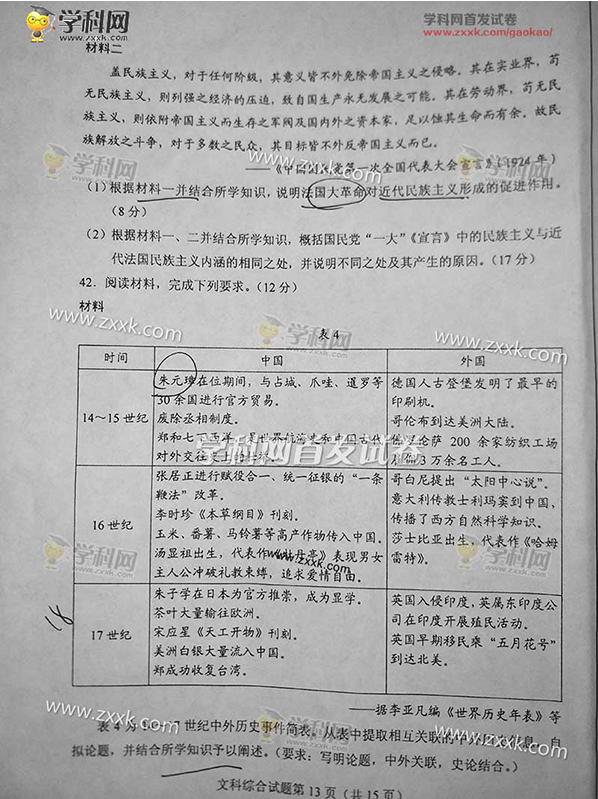 学科网
www.zxxk.com
学科网首发试卷
www.zxxk.com/gaokao/
材料二
盖民族主义，对于任何阶级，其意义皆不外免除帝国主义之侵略。其在实业界，苟
无民族主义，则列强之经济的压迫，致自国生产永无发展之可能。其在劳动界，苟无民
族主义，则依附帝国主义而生存之军阀及国内外之资本家，足以蚀其生命而有余。故民
族解放之斗争，对于多数之民众，其目标皆不外反帝国主义而已。
——《中国国民党第一次全国代表大会宣言》（1924 年）
（1）根据材料一并结合所学知识，说明法国大革命对近代民族主义形成的促进作用。
（8 分）
（2）根据材料一、二并结合所学知识，概括国民党“一大”《宣言》中的民族主义与近
代法国民族主义内涵的相同之处，并说明不同之处及其产生的原因。（17 分）
42．阅读材料，完成下列要求。（12 分）
材料
表 4
时间 中国 外国
14～15 世纪
朱元璋在位期间，与占城、爪哇、暹罗等
30 余国进行官方贸易。
废除丞相制度。
郑和七下西洋，是世界航海史和中国古代
对外交往史上的
德国人古登堡发明了最早的
印刷机。
哥伦布到达美洲大陆。
佛罗伦萨 200 余家纺织工场
3 万余名工人。
16 世纪
张居正进行赋役合一、统一征银的“一条
鞭法”改革。
李时珍《本草纲目》刊刻。
玉米、番薯、马铃薯等高产作物传入中国。
汤显祖出生，代表作《牡丹亭》表现男女
主人公冲破礼教束缚，追求爱情自由。
哥白尼提出“太阳中心说”。
意大利传教士利玛窦到中国，
传播了西方自然科学知识。
莎士比亚出生，代表作《哈姆
雷特》。
17 世纪
朱子学在日本为官方推崇，成为显学。
茶叶大量输往欧洲。
宋应星《天工开物》刊刻。
美洲白银大量流入中国。
郑成功收复台湾。
英国入侵印度，英属东印度公
司在印度开展殖民活动。
英国早期移民乘“五月花号”
到达北美。
——据李亚凡编《世界历史年表》等
表 4 为 14～17 世纪中外历史事件简表。从表中提取相互关联的中外历史信息，自
拟论题，并结合所学知识予以阐述。（要求：写明论题，中外关联，史论结合。）
文科综合试题第 13 页（共 15 页）